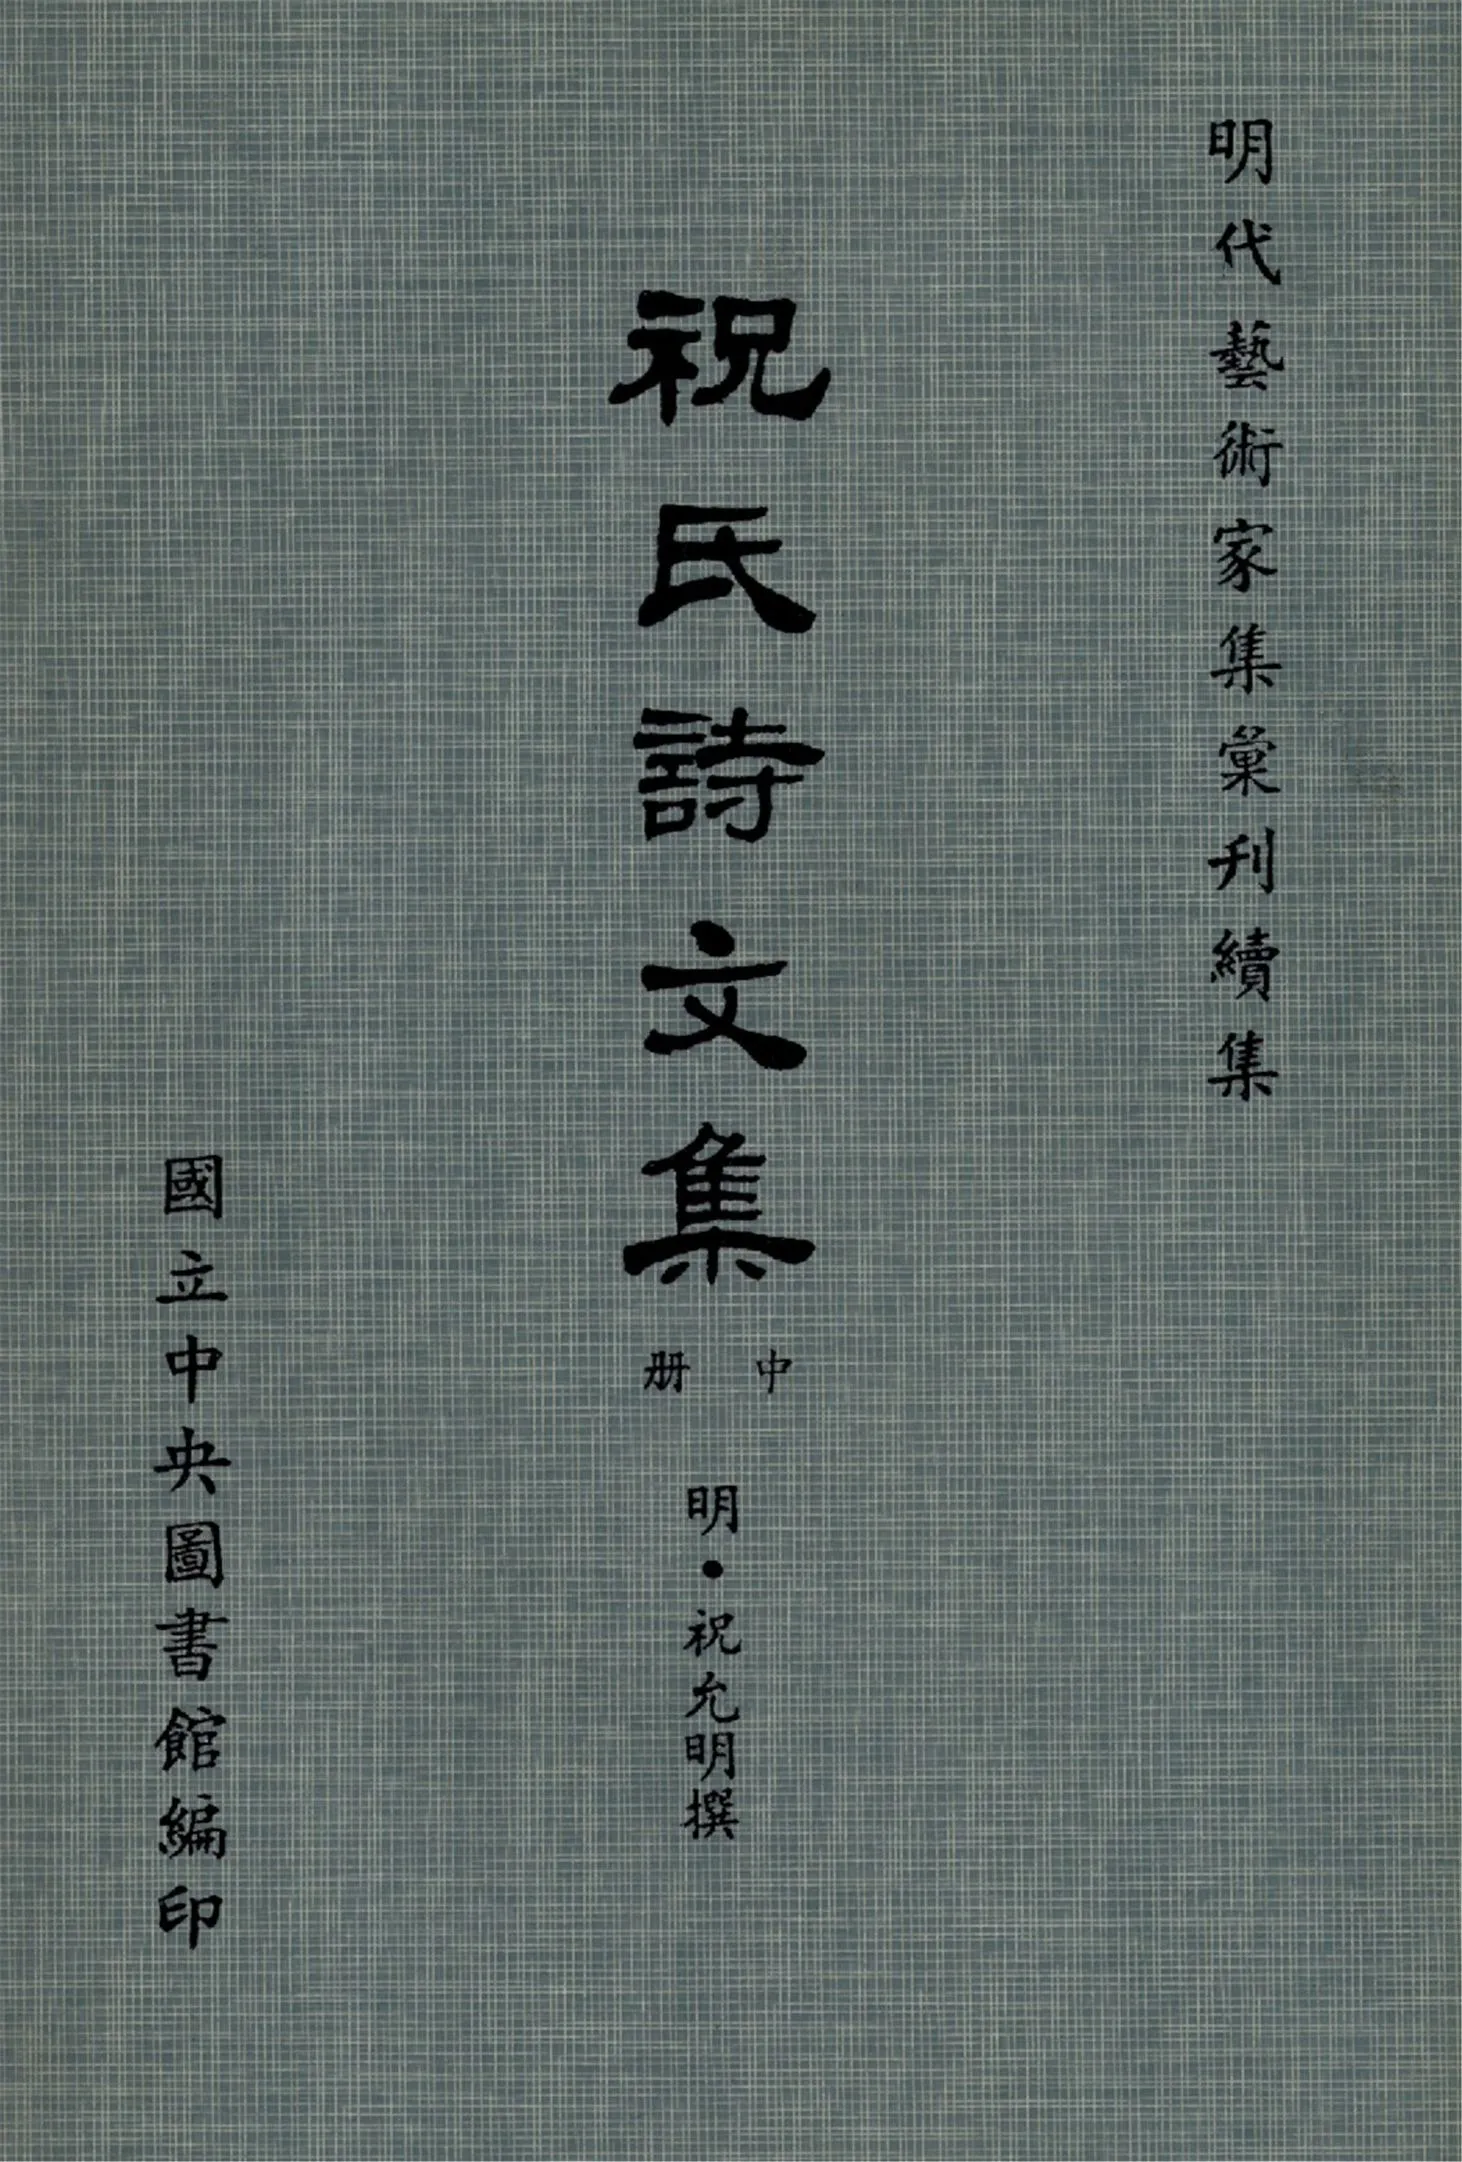 明代藝術家集彙刊續集
祝氏詩文集
中册
明•祝允明撰
國立中央圖書館編印